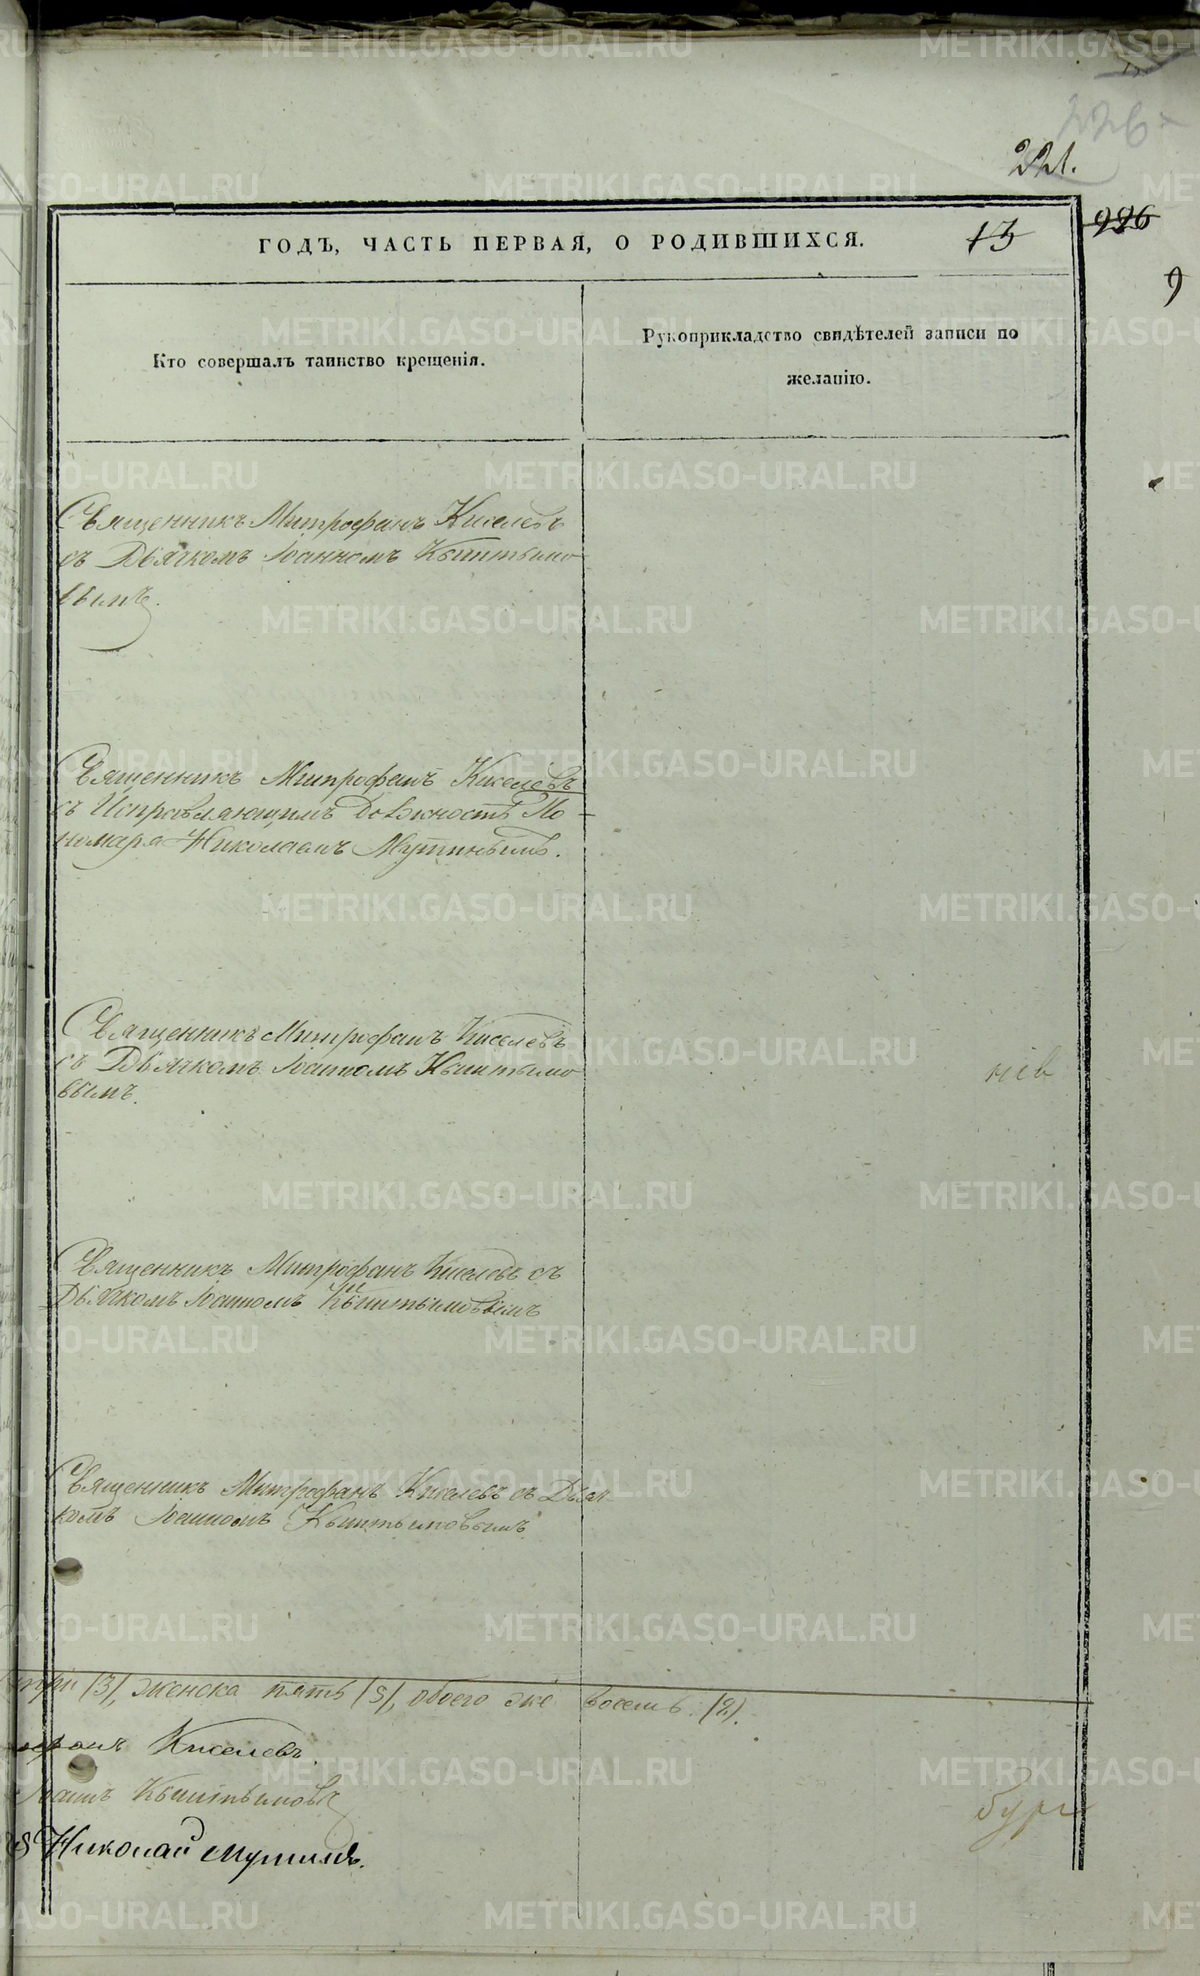 226
221.
ГОДЪ, ЧАСТЬ ПЕРВАЯ, О РОДИВШИХСЯ.
13
226
9
Кто совершалъ таинство крещенія.
Рукоприкладство свидѣтелей записи по
желанію.
Священникъ Митрофанъ Киселевъ
съ Дьячкомъ Іоанномъ Кыштымо
вымъ.
Священникъ Митрофанъ Киселевъ
съ Исправляющимъ Должность По-
номаря Николаемъ Мутинымъ.
Священникъ Митрофанъ Киселевъ
съ Дьячкомъ Іоанномъ Кыштымо
вымъ.
Священникъ Митрофанъ Киселевъ съ
Дьячкомъ Іоанномъ Кыштымовымъ
Священникъ Митрофанъ Киселевъ съ Дьяч
комъ Іоанномъ Кыштымовымъ
три /3/, женска пять /5/, обоего же восемь. /8/.
рофанъ Киселевъ.
Іоаннъ Кыштымовъ
Николай Мутинъ.
METRIKI.GASO-URAL.RU